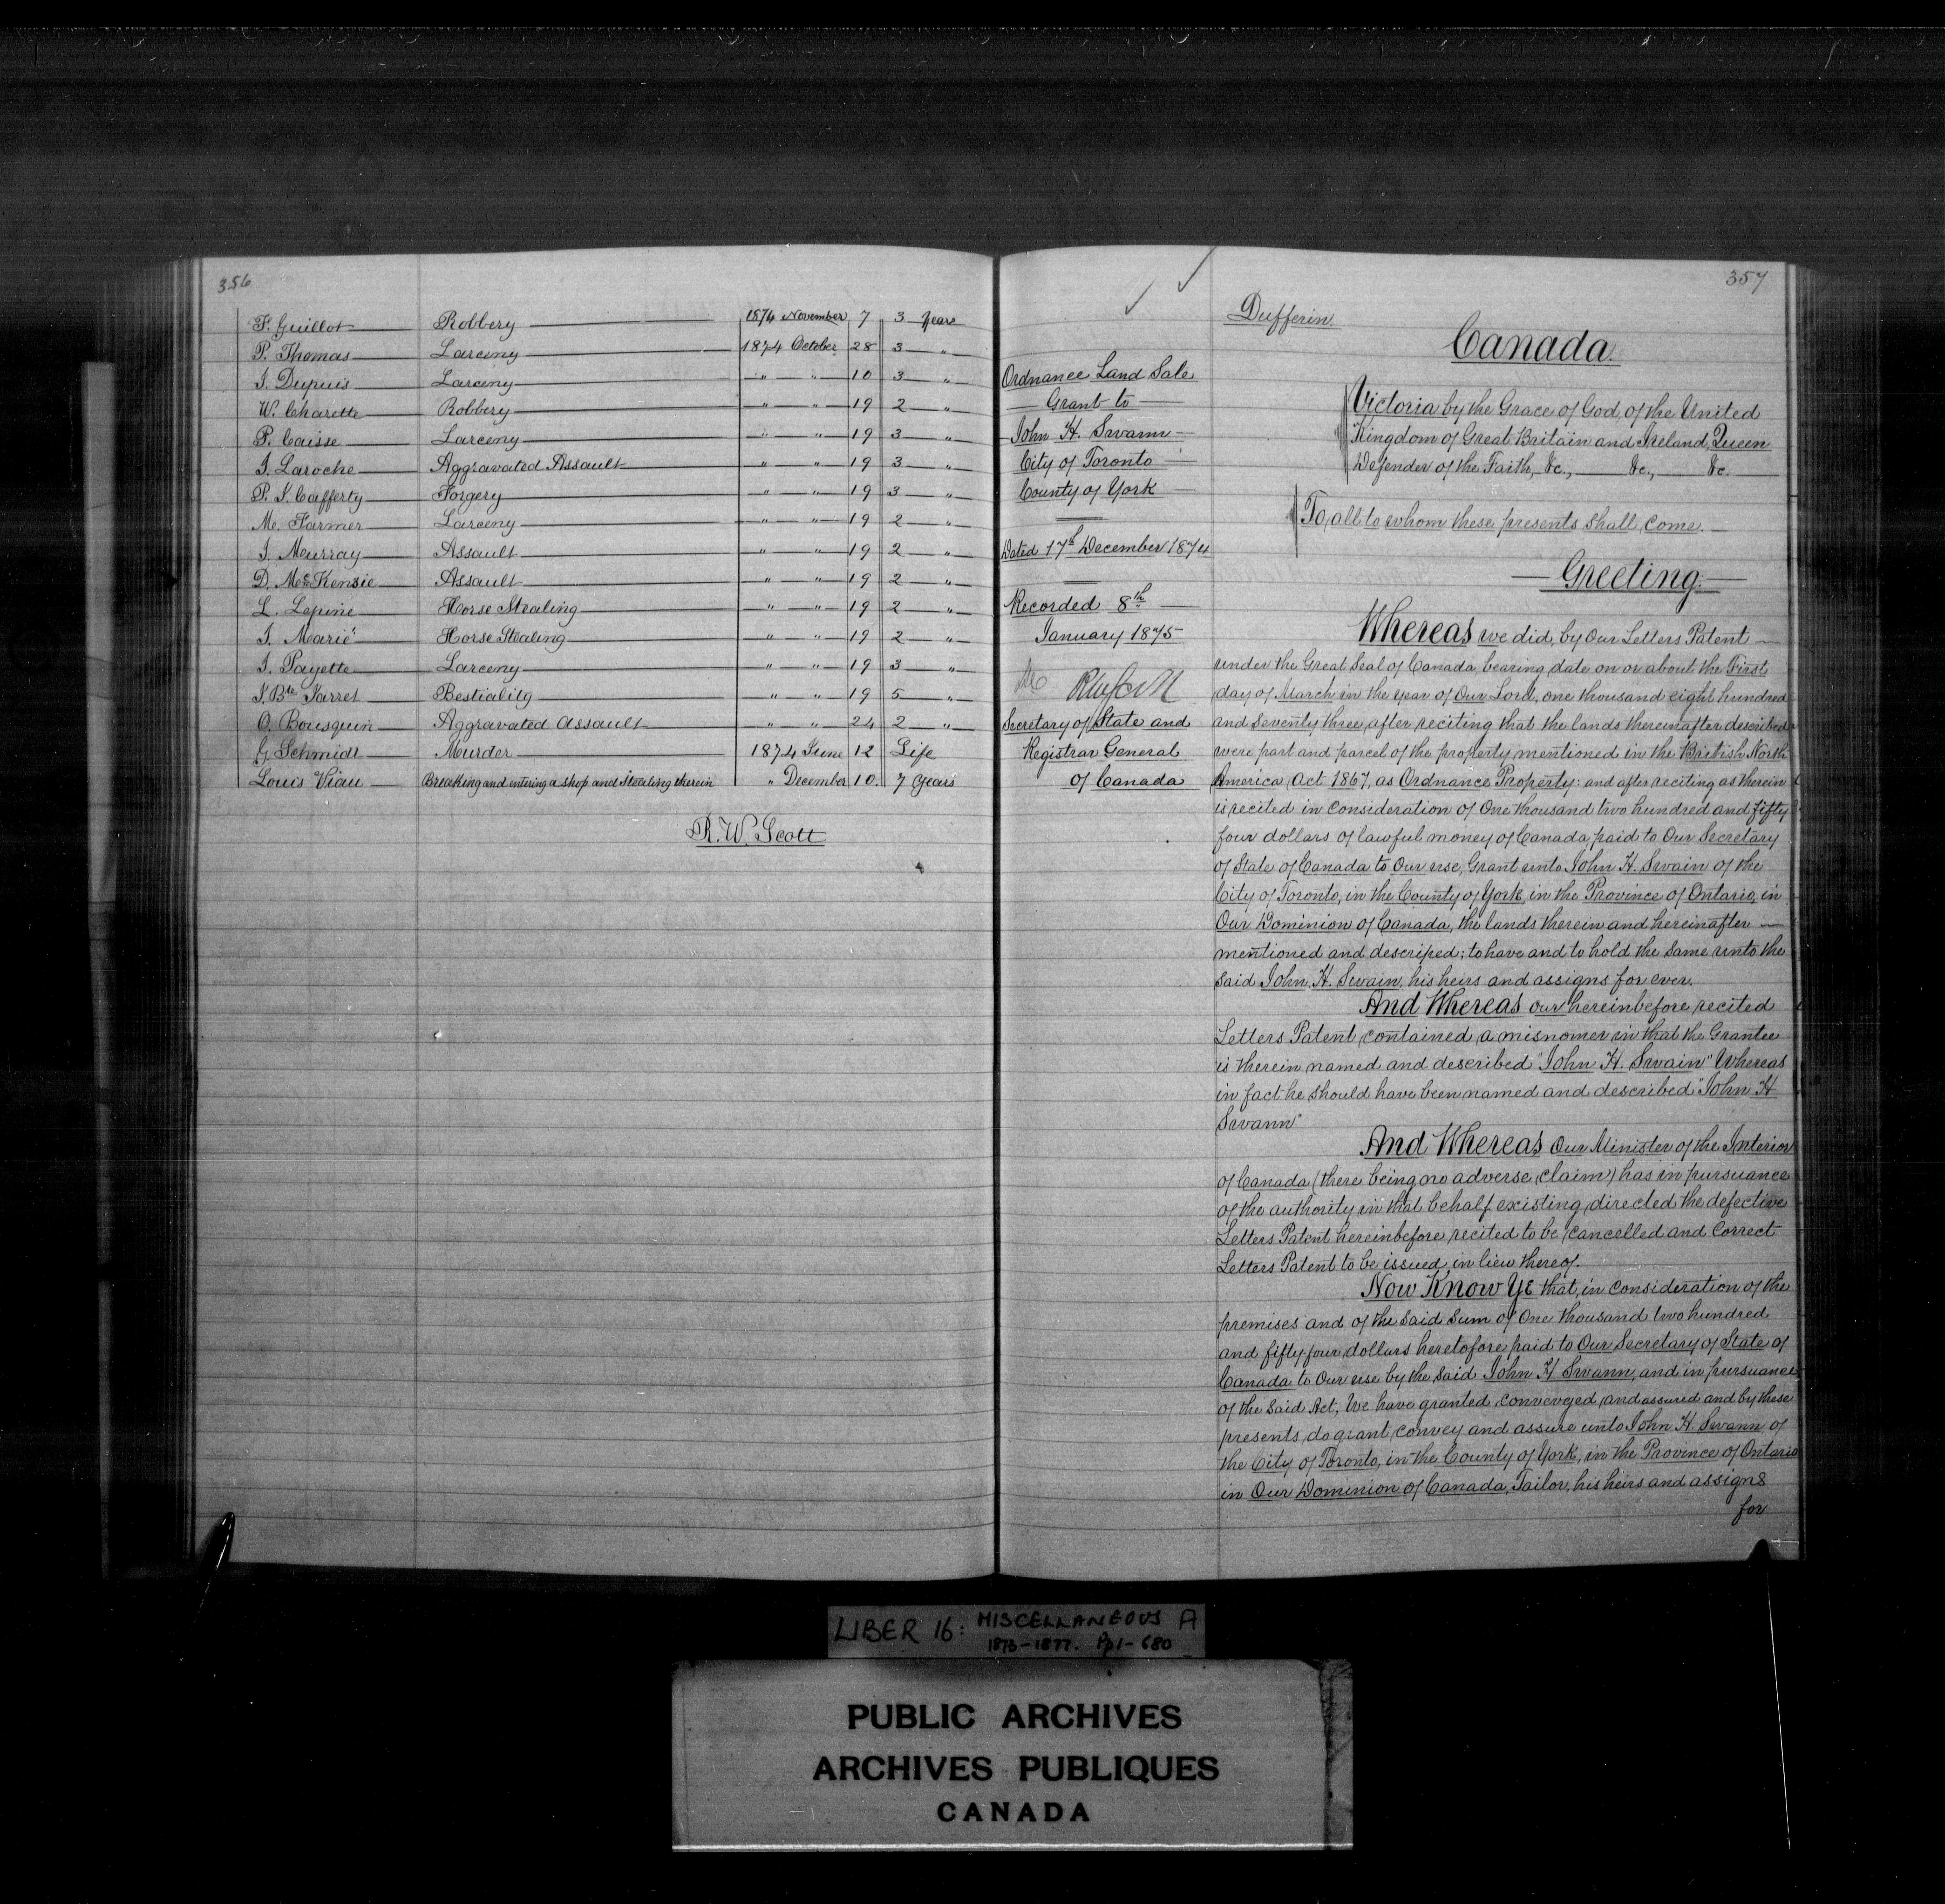 356
F. Guillot Robbery 1874 November 7 3 Years
P. Thomas Larceny 1874 October 28 3 "
J. Dupuis Larceny " " 10 3 "
W. Charette Robbery " " 19 2 "
P. Caisse Larceny " " 19 3 "
J. Laroche Aggravated Assault " " 19 3 "
P. J. Cafferty Forgery " " 19 3 "
M. Farmer Larceny " " 19 2 "
J. Murray Assault " " 19 2 "
D. McKensie Assault " " 19 2 "
L. Lepine Horse Stealing " " 19 2 "
J. Marié Horse Stealing " " 19 2 "
J. Payette Larceny " " 19 3 "
J. Bte Jarret Bestiality " " 19 5 "
O. Bousquin Aggravated assault " " 24 2 "
G Schmidt Murder 1874 June 12 Life
Louis Viau Breaking and entering a shop and Stealing therein " December 10. 7 Years
R. W. Scott
357
Dufferin.
Canada.
Ordnance Land Sale
Grant to
John H. Swann
City of Toronto
County of York
Dated 17th December 1874
Recorded 8th
January 1875
Secretary of State and
Registrar General
of Canada
Victoria by the Grace of God, of the United
Kingdom of Great Britain and Ireland, Queen
Defender of the Faith, &c., &c., &c.
To all to whom these presents shall come.
Greeting.
Whereas we did, by Our Letters Patent
under the Great Seal of Canada, bearing date on or about the First
day of March in the year of Our Lord, one thousand eight hundred
and seventy three, after reciting that the lands thereinafter described
were part and parcel of the property mentioned in the British North
America Act 1867, as Ordnance Property: and after reciting as therein
is recited in consideration of One thousand two hundred and fifty
four dollars of lawful money of Canada, paid to Our Secretary
of State of Canada to Our use, Grant unto John H. Swain of the
City of Toronto, in the County of York, in the Province of Ontario, in
Our Dominion of Canada, the lands therein and hereinafter
mentioned and descriped; to have and to hold the same unto the
said John H. Swain, his heirs and assigns for ever.
And Whereas our hereinbefore recited
Letters Patent, contained a misnomer in that the Grantee
is therein named and described "John H. Swain" Whereas
in fact he should have been named and described "John H
Swann"
And Whereas Our Minister of the Interior
of Canada (there being no adverse claim) has in pursuance
of the authority in that behalf existing, directed the defective
Letters Patent hereinbefore recited to be cancelled and Correct
Letters Patent to be issued in lieu thereof.
Now Know Ye that, in consideration of the
premises and of the said Sum of One thousand two hundred
and fifty four dollars heretofore paid to Our Secretary of State of
Canada to Our use by the said John H Swann, and in pursuance
of the said Act, We have granted, conveyed, and assured and by these
presents do grant, convey and assure unto John H. Swann of
the City of Toronto, in the County of York, in the Province of Ontario
in Our Dominion of Canada, Tailor, his heirs and assigns
for
LIBER 16: MISCELLANEOUS A
1873-1877. Pp 1-680
PUBLIC ARCHIVES
ARCHIVES PUBLIQUES
CANADA